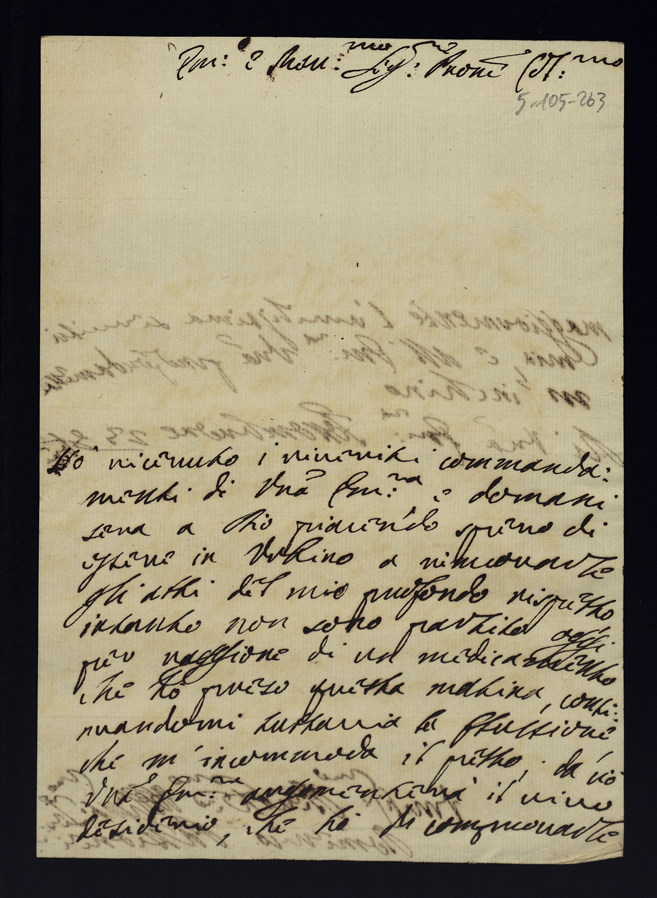 Em: e Reu:mo Sig:re Prone Col:mo
5-105-263
Hò riceuuto i riueriti commanda:
menti di Vra Em:za e domani
sera a Dio piacendo spero di
essere in Vrbino a rinouarle
gli atti del mio profondo rispetto
intanto non sono partita oggi
per raggione di un medicamento
che hò preso questa matina, conti:
nuandomi tuttauia la flussione
che m'incommoda il petto, da ciò
Vra Em:za argomenterà il viuo
desiderio, che hò di comprouarle